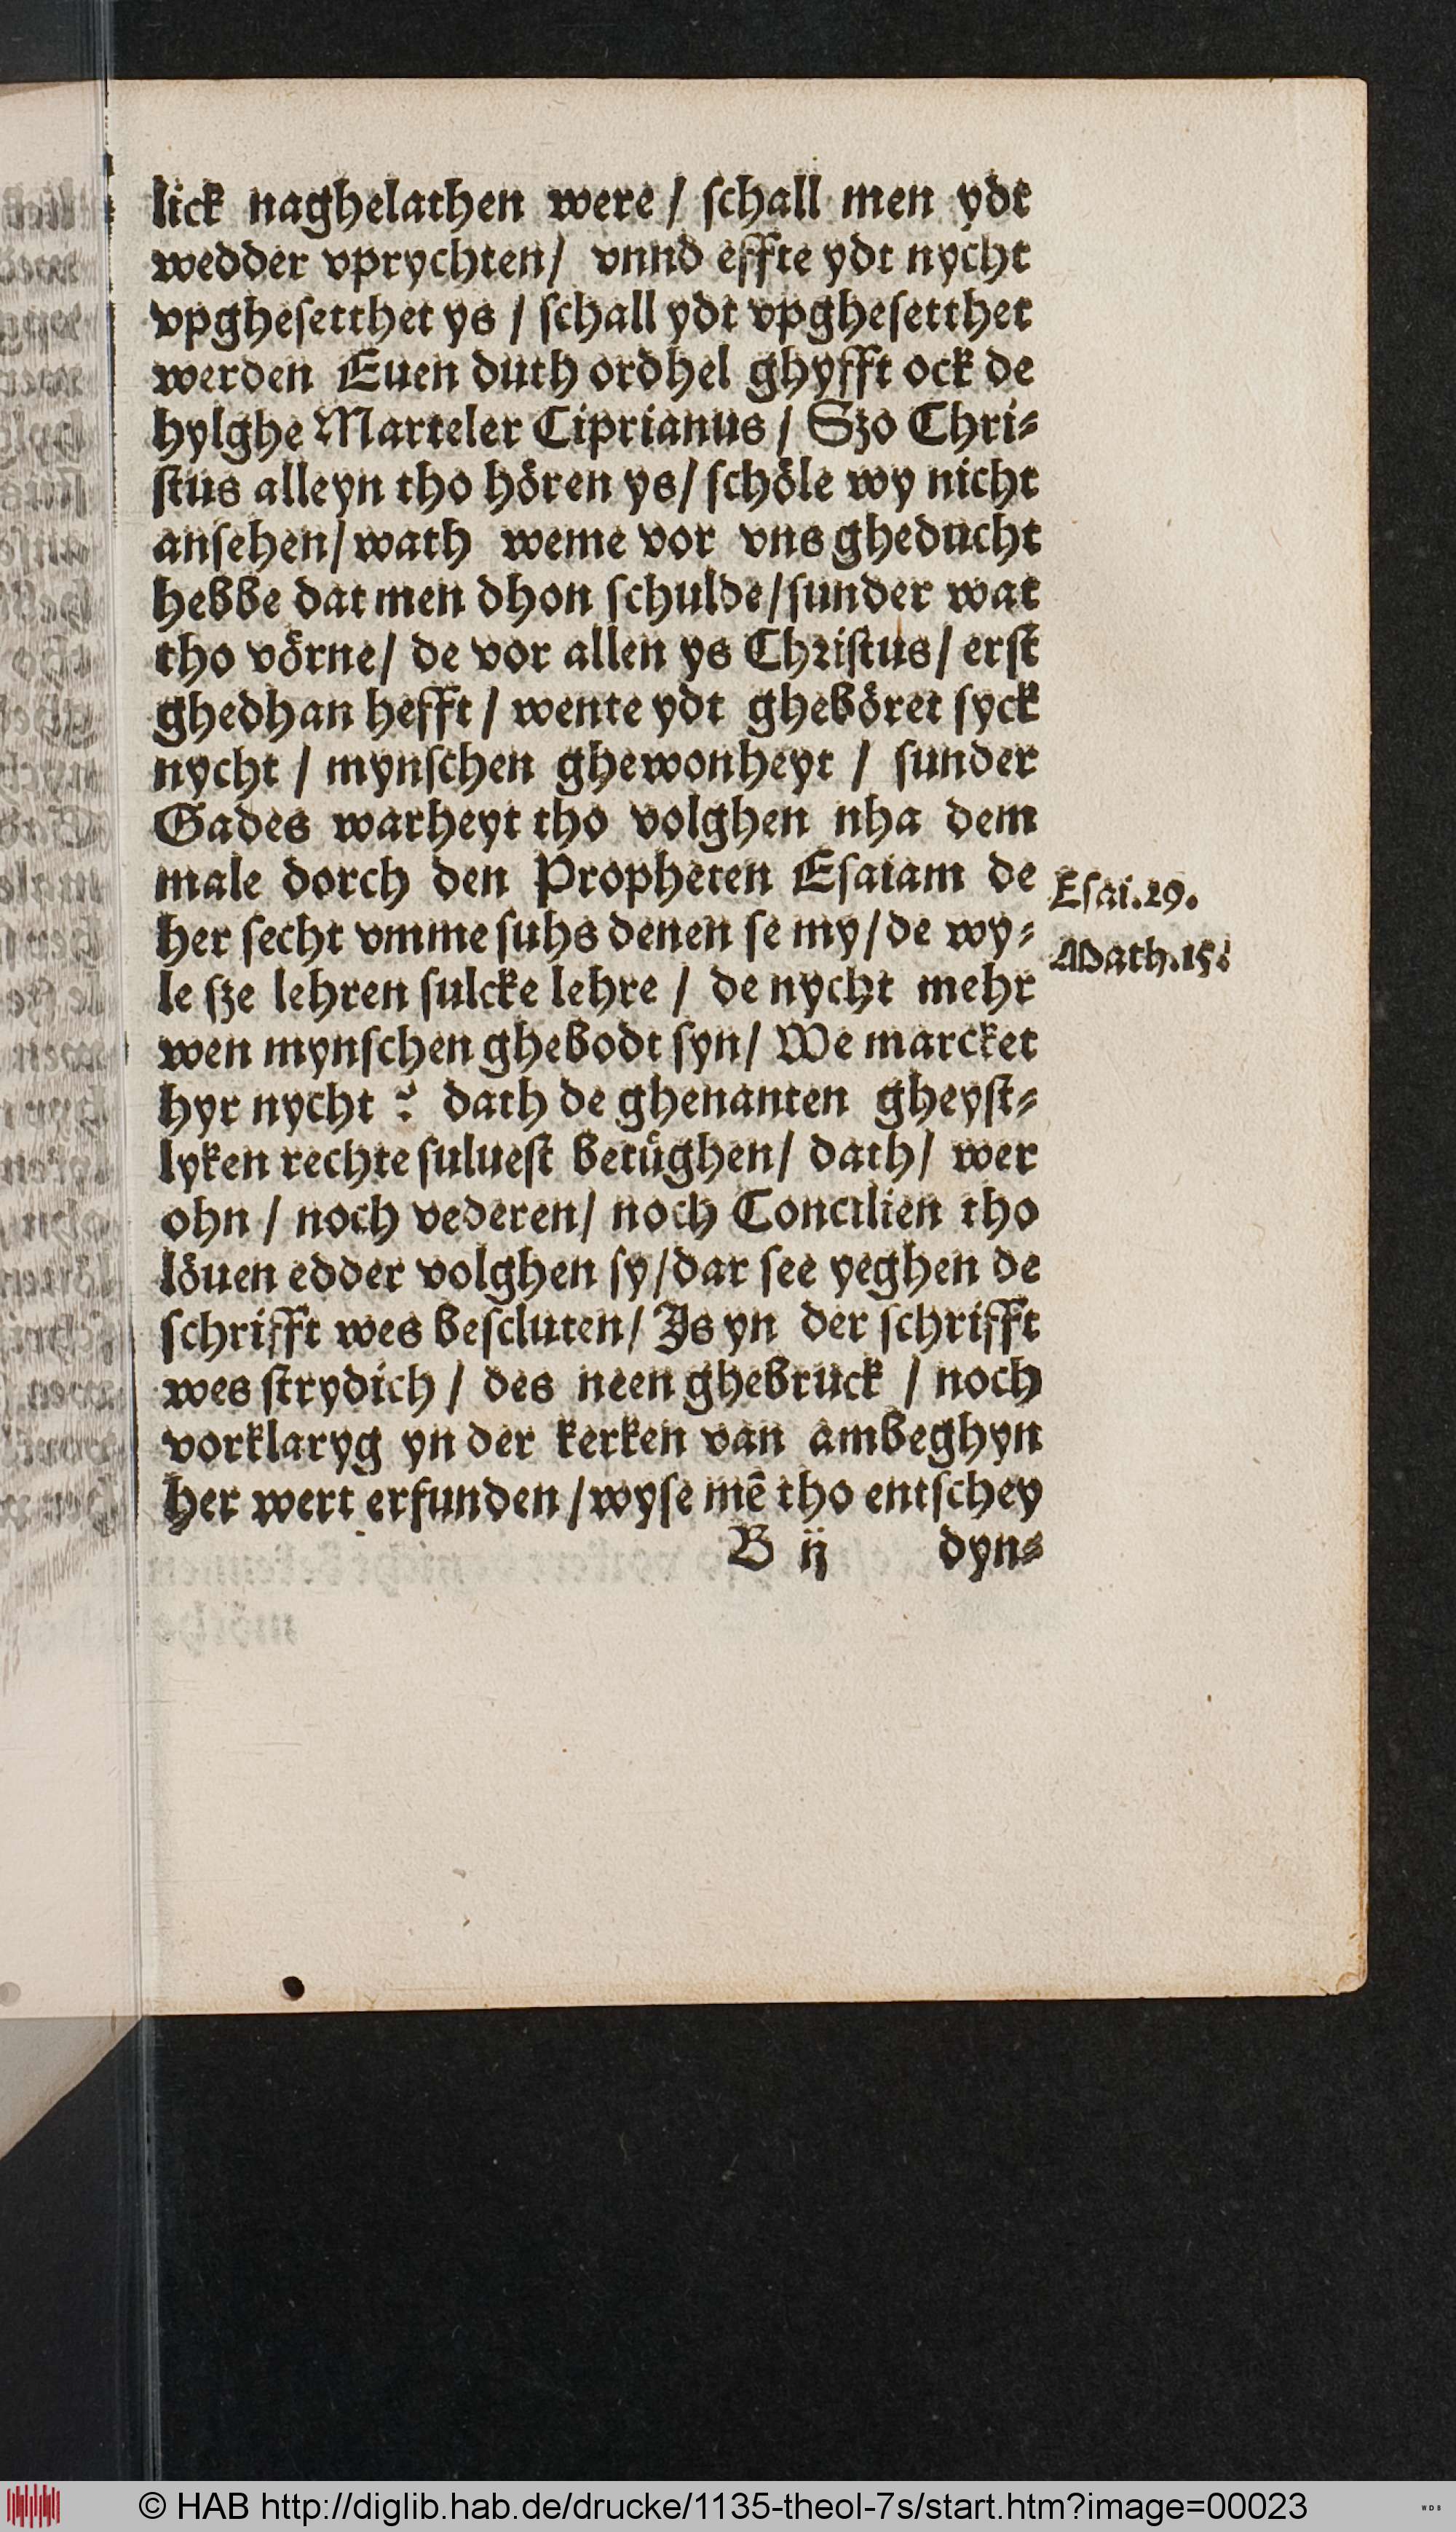 lick naghelathen were / ſchall men ydt
wedder vprychten / vnnd effte ydt nycht
vpgheſetthet ys / ſchall ydt vpgheſetthet
werden Euen duth ordhel ghyfft ock de
hylghe Marteler Ciprianus / Szo Chri⸗
ſtus alleyn tho hoͤren ys / ſchoͤle wy nicht
anſehen / wath weme vor vns gheducht
hebbe dat men dhon ſchulde / ſunder wat
tho voͤrne / de vor allen ys Chꝛiſtus / erſt
ghedhan hefft / wente ydt gheboͤret ſyck
nycht / mynſchen ghewonheyt / ſunder
Gades warheyt tho volghen nha dem
male dorch den Propheten Eſaiam de
Eſai.29.
her ſecht vmme ſuhs denen ſe my / de wy⸗
Math.15.
le ſze lehren ſulcke lehre / de nycht mehr
wen mynſchen ghebodt ſyn / We marcket
hyr nycht ? dath de ghenanten gheyſt⸗
lyken rechte ſulueſt betuͤghen / dath / wer
ohn / noch vederen / noch Concilien tho
loͤuen edder volghen ſy / dar ſee yeghen de
ſchrifft wes beſcluten / Js yn der ſchrifft
wes ſtrydich / des neen ghebruck / noch
vorklaryg yn der kerken van ambeghyn
her wert erfunden / wyſe mē tho entſchey
B ij dyn⸗
© HAB http://diglib.hab.de/drucke/1135-theol-7s/start.htm?image=00023
WDB